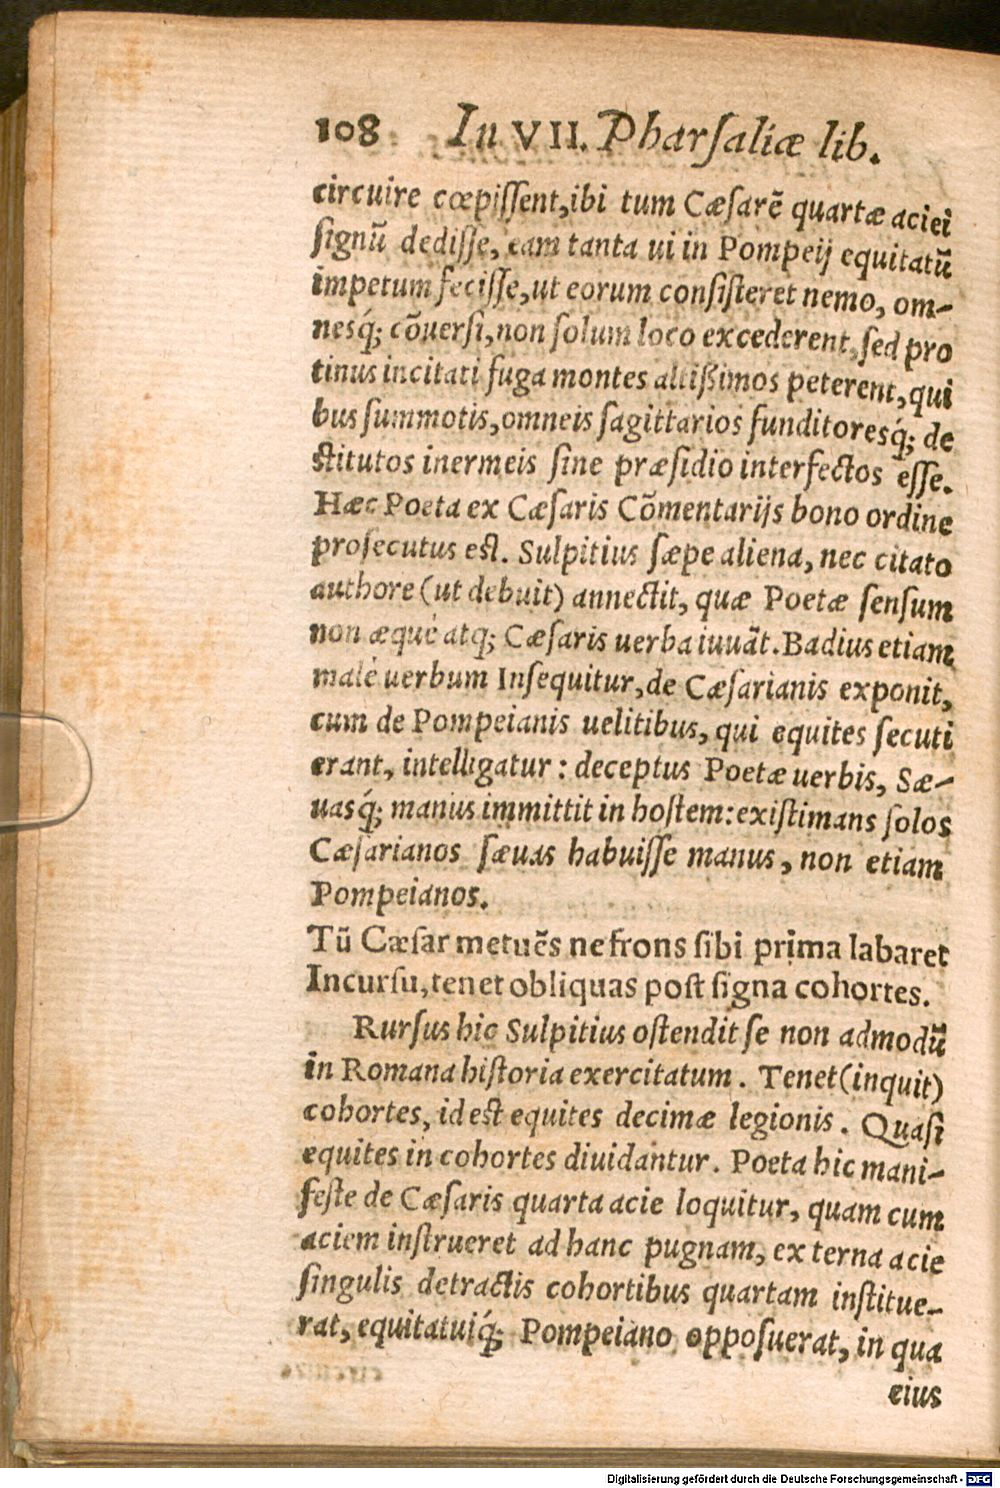 108 In VII. Pharsaliæ lib.
circuire cœpiſſent, ibi tum Cæſarē quartæ aciei
ſignū dediſſe, eam tanta ui in Pompeij equitatū
impetum feciſſe, ut eorum conſiſteret nemo, om-
nesq́; cōuerſi, non ſolum loco excederent, ſed pro
tinus incitati fuga montes altißimos peterent, qui
bus ſummotis, omneis ſagittarios funditoresq́; de
ſtitutos inermeis ſine præſidio interfectos eſſe.
Hæc Poeta ex Cæſaris Cōmentarijs bono ordine
proſecutus eſt. Sulpitius ſæpe aliena, nec citato
authore (ut debuit) annectit, quæ Poetæ ſenſum
non æquè atq; Cæſaris uerba iuuāt. Badius etiam
malè uerbum Inſequitur, de Cæſarianis exponit,
cum de Pompeianis uelitibus, qui equites ſecuti
erant, intelligatur: deceptus Poetæ uerbis, Sæ-
uasq́; manus immittit in hoſtem: exiſtimans ſolos
Cæſarianos ſæuas habuiſſe manus, non etiam
Pompeianos.
Tū Cæſar metuēs ne frons ſibi prima labaret
Incurſu, tenet obliquas poſt ſigna cohortes.
Rurſus hic Sulpitius oſtendit ſe non admodū
in Romana hiſtoria exercitatum. Tenet (inquit)
cohortes, id eſt equites decimæ legionis. Quaſi
equites in cohortes diuidantur. Poeta hic mani-
feſte de Cæſaris quarta acie loquitur, quam cum
aciem inſtrueret ad hanc pugnam, ex terna acie
ſingulis detractis cohortibus quartam inſtitue-
rat, equitatuiq́; Pompeiano oppoſuerat, in qua
eius
Digitalisierung gefördert durch die Deutsche Forschungsgemeinschaft - DFG